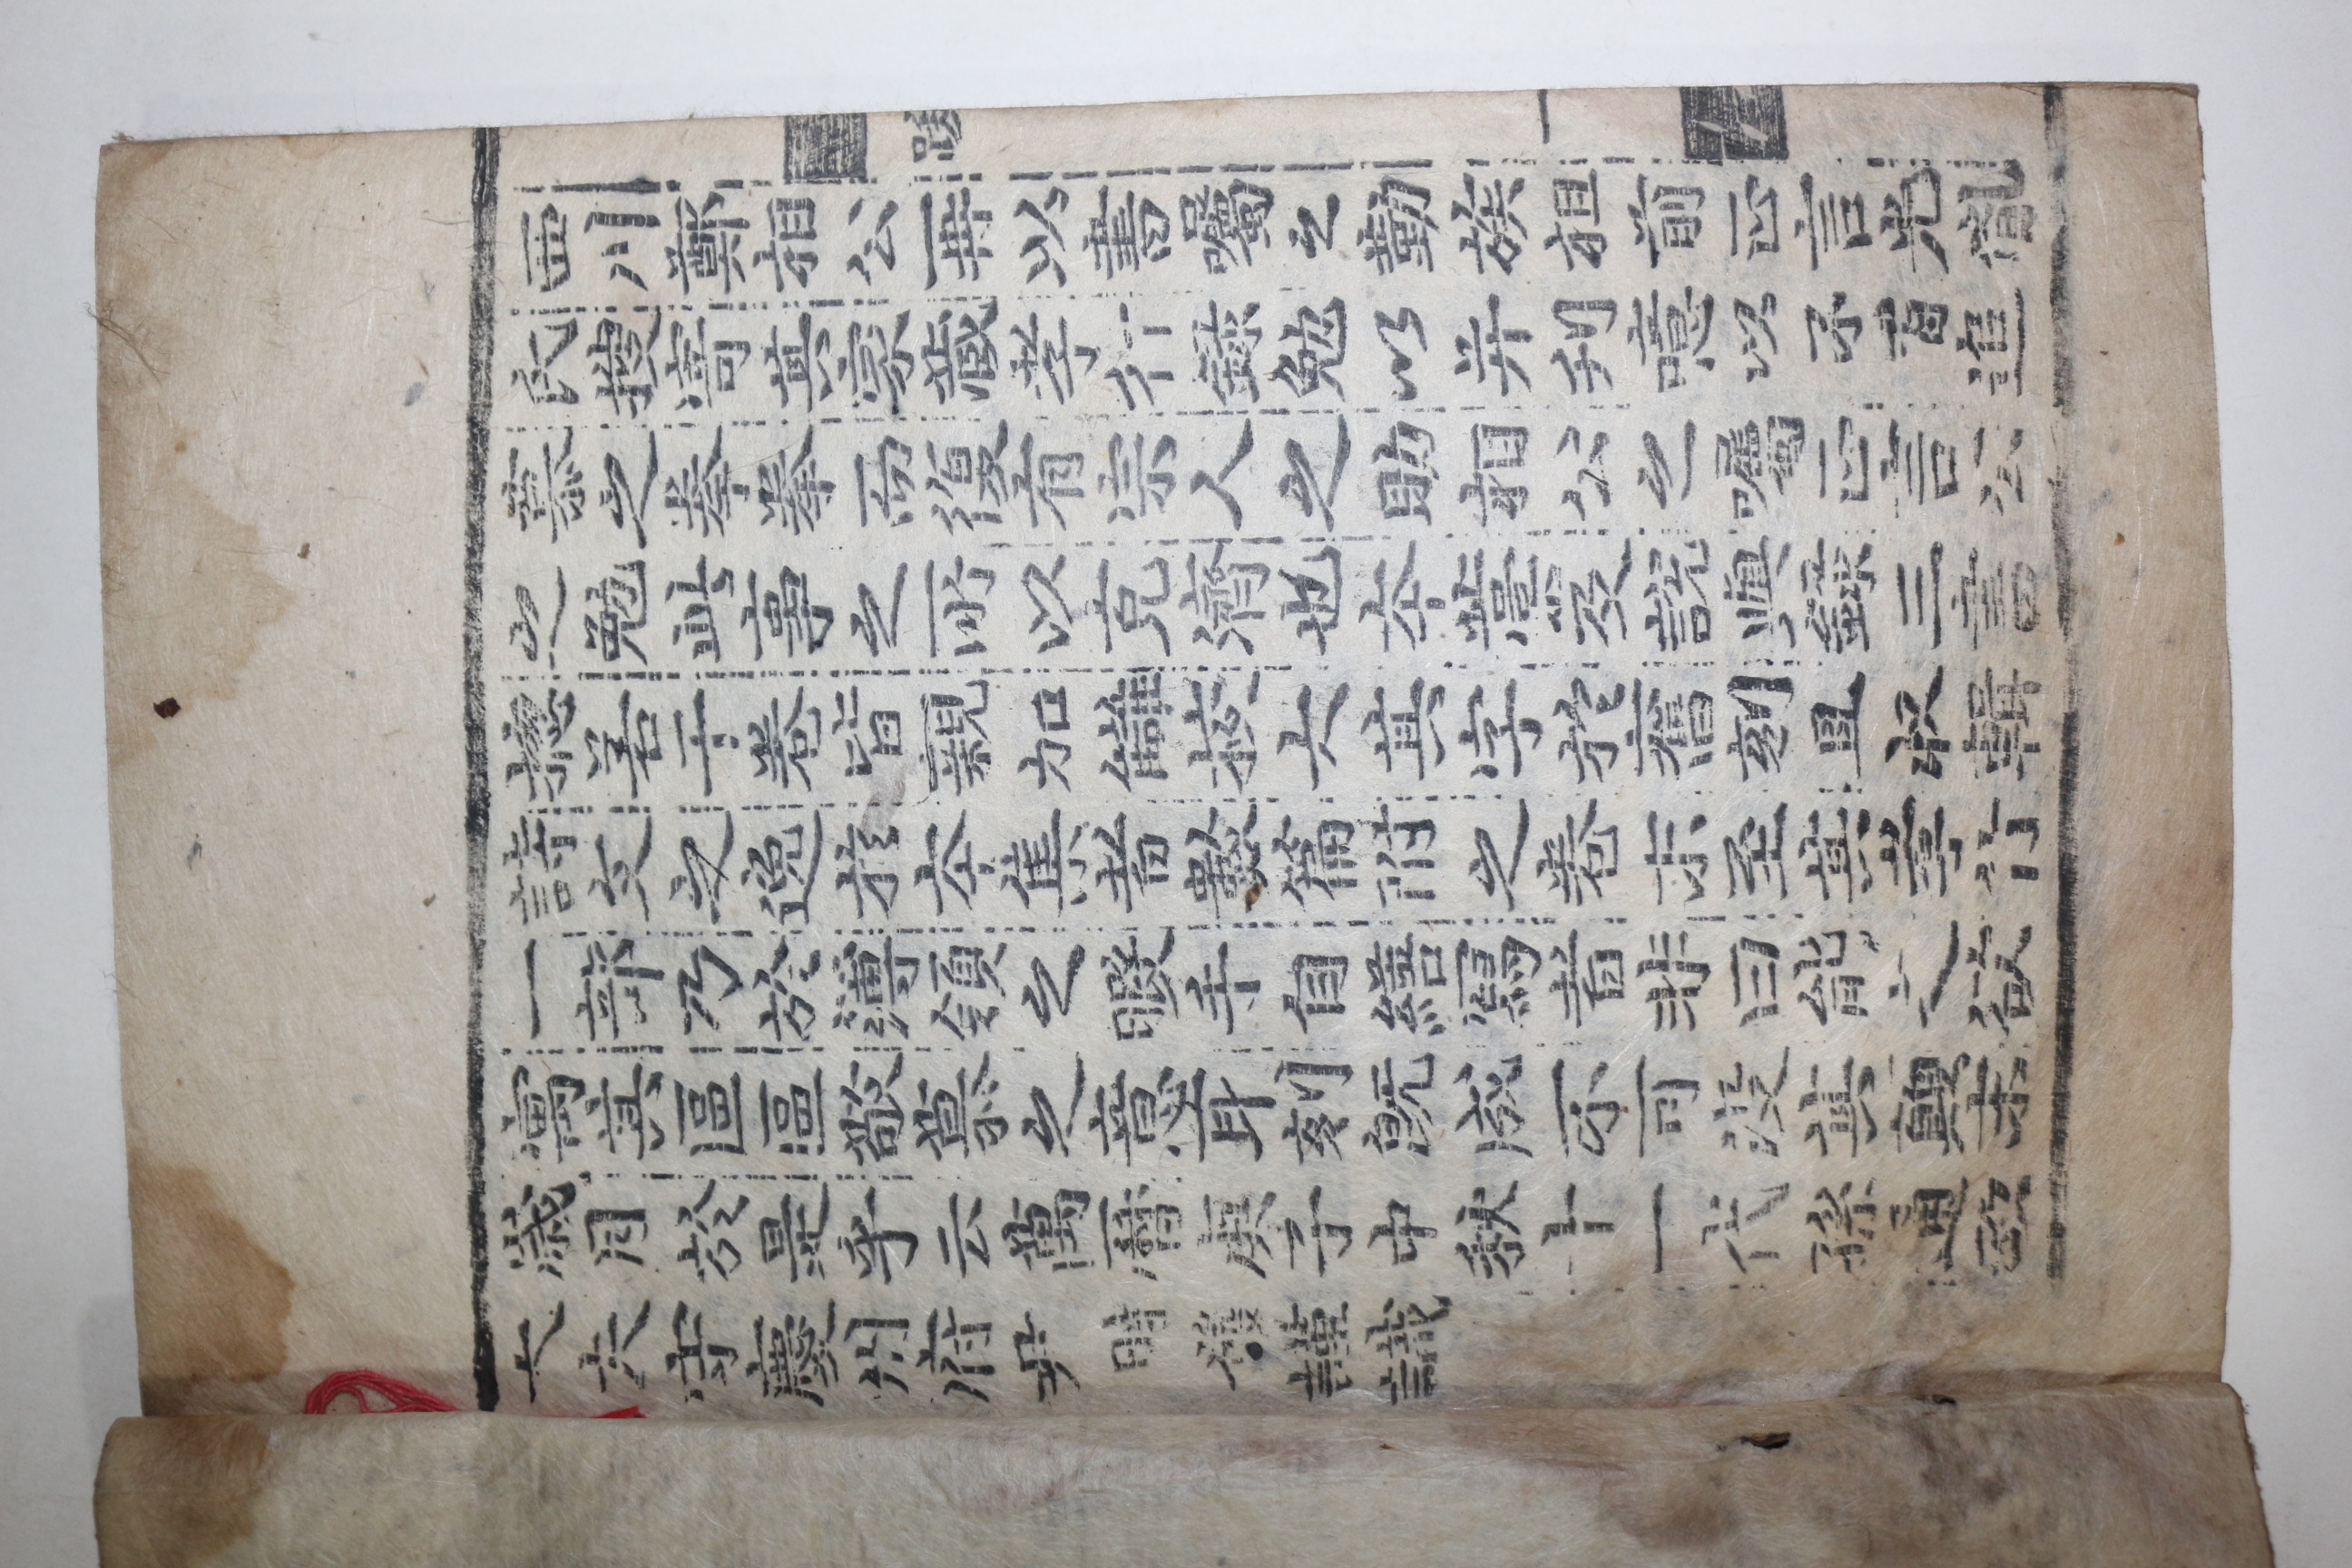 西川鄭相公再以書囑之勤族祖前正言光胤
氏搜寄其家藏孝行録勉以并刊意以不肖追
慕之拳拳而復有宗人之助相公之囑正言公
之勉此事之所以克濟也夲藁及説與録三書
摠若干卷皆親加讎校大其字於舊刻且收輯
詩文之逸於夲集者數篇附之卷末至其孝行
一部乃於簿領之暇手自繕寫者非曰能之欲
寓其區區敬慕之意耳刻旣成不可沒其顚末
歲月於是乎云萬曆庚子中秋十一代孫通政
大夫守慶州府尹 時發謹識
跋
一